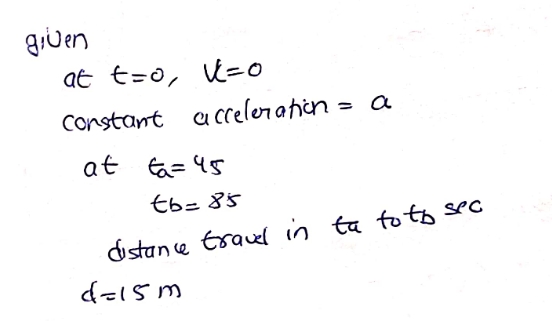 given
at t=0, V=0
constant acceleration = a
at ta=4s
tb=8s
distance travel in ta to tb sec
d=15 m